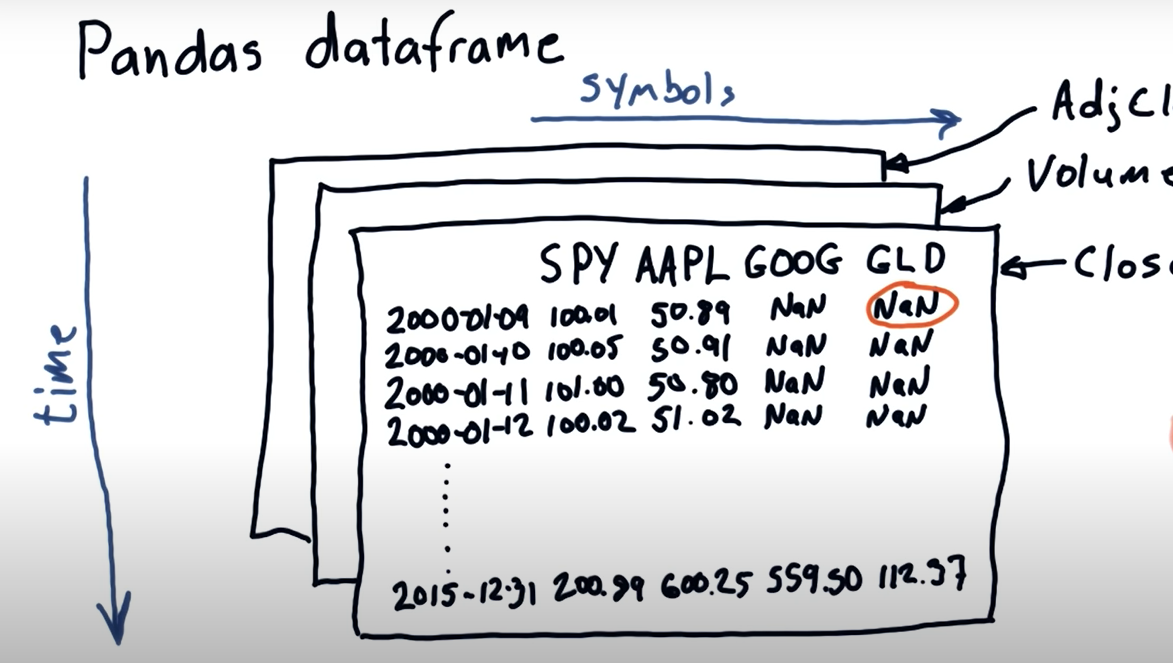 Pandas dataframe
symbols
AdjCl
Volume
Close
time
SPY AAPL GOOG GLD
2000-01-09 100.01 50.89 NaN NaN
2000-01-10 100.05 50.91 NaN NaN
2000-01-11 101.00 50.80 NaN NaN
2000-01-12 100.02 51.02 NaN NaN
2015-12-31 200.99 600.25 559.50 112.37